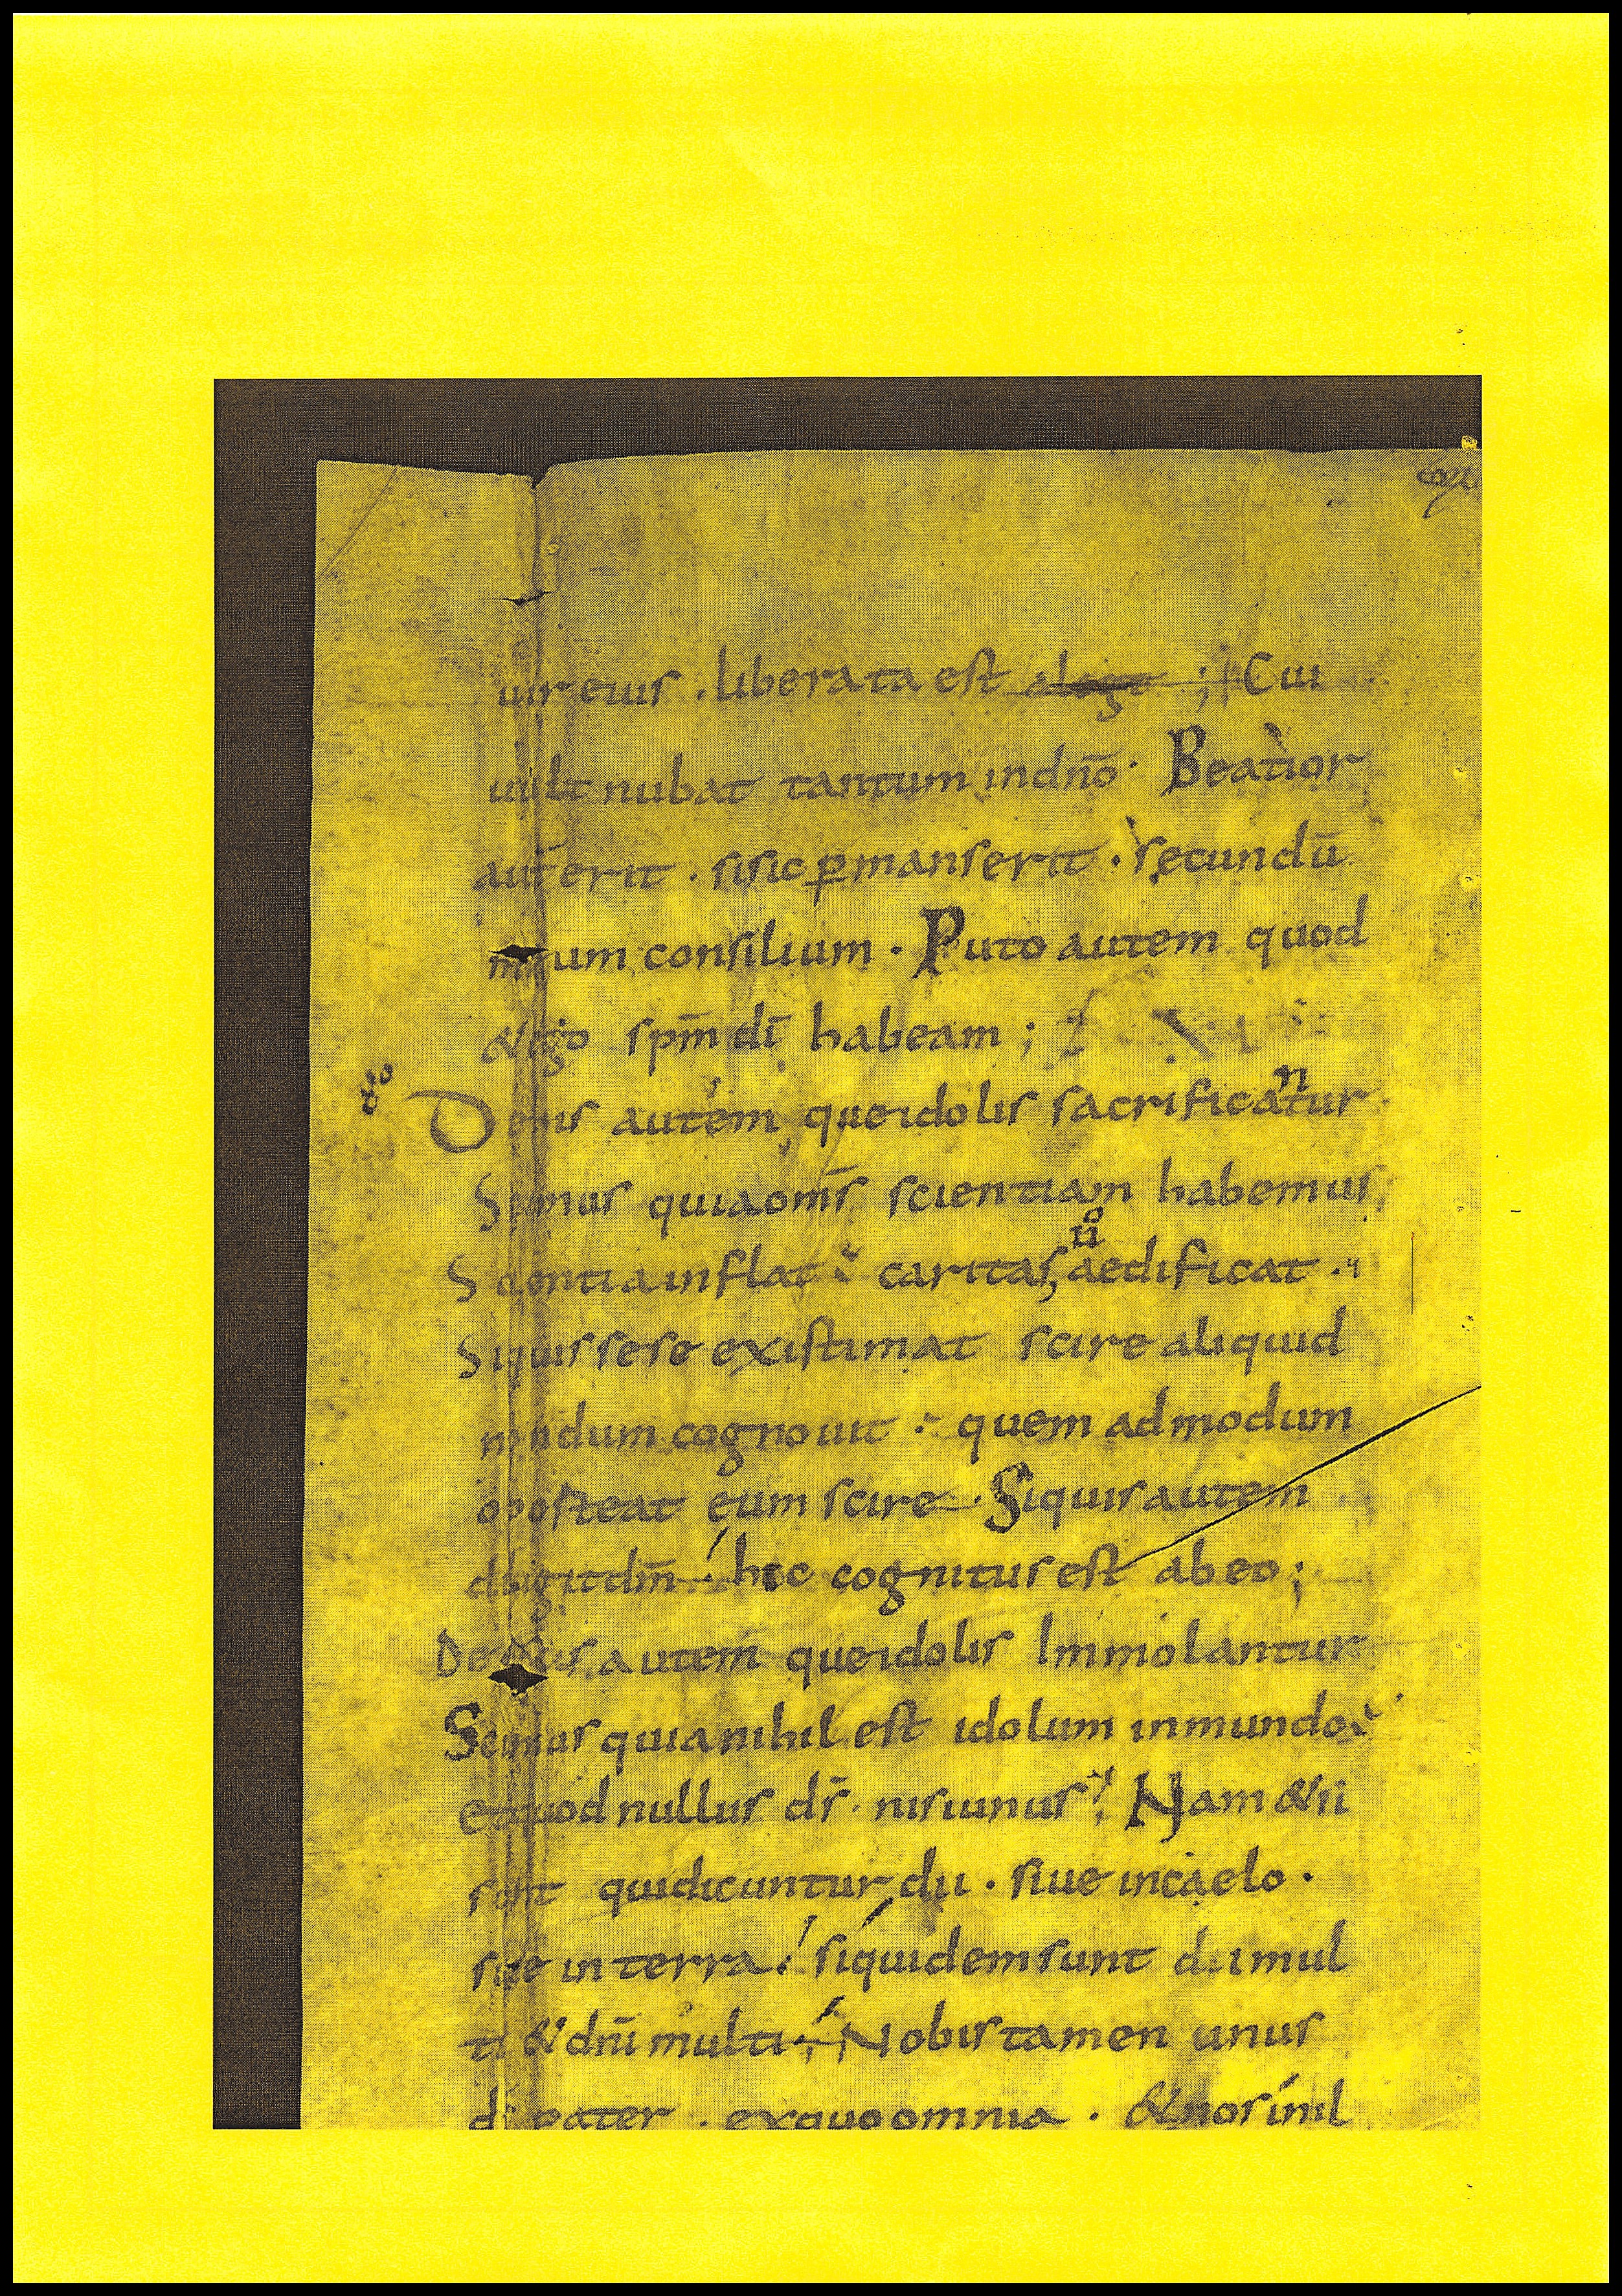 uir eius . liberata est a lege ; Cui
uult nubat tantum in dn̄o . Beatior
autem erit . si sic ꝑmanserit . secundū
meum consilium . Puto autem quod
& ego spm̄ dī habeam ;
De his autem que idolis sacrificantur
Scimus quia om̄s scientiam habemus
Scientia inflat . caritas u͞o aedificat .
Siquis se se existimat scire aliquid
nondum cognouit . quem ad modum
oposteat eum scire . Siquis autem
diligit dm̄ . hic cognitus est ab eo ;
De escis autem que idolis Immolantur
Scimus quia nihil est idolum in mundo
et quod nullus ds̄ . nisi unus ; Nam & ii
sunt qui dicuntur dii . siue in caelo .
siue in terra . siquidem sunt dii mul
ti & dn̄i multi ; Nobis tamen unus
ds̄ pater . ex quo omnia . & nos in il